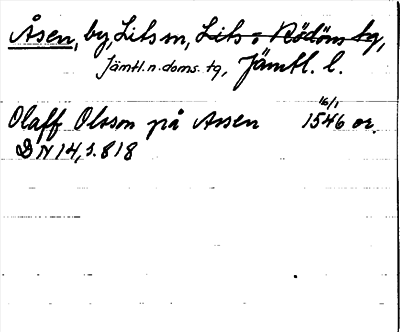 Åsen, by, Lits sn, Lits o Rödöns tg,
Jämtl. n. doms. tg, Jämtl. l.
Olaff Olsson på Assen 16/1 1546 or.
DN 14, s. 818